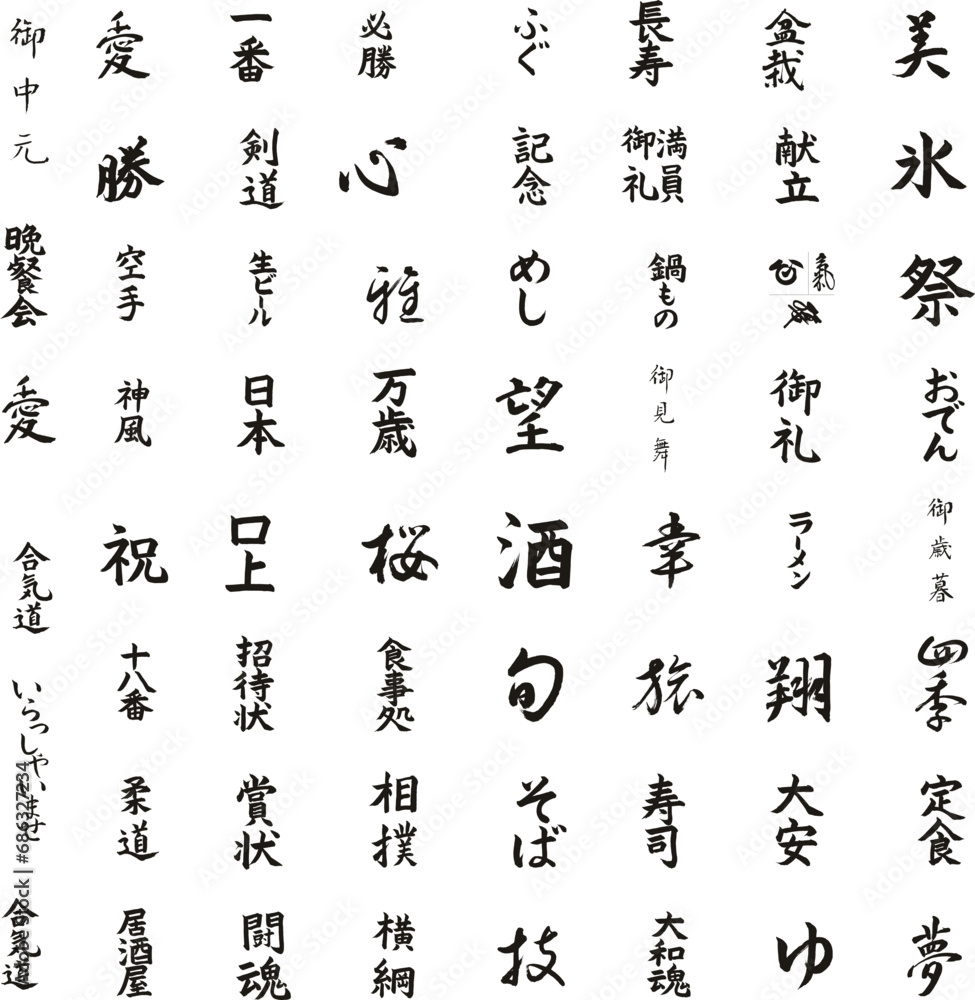 御中元
愛
一番
必勝
ふぐ
長寿
盆栽
美
勝
剣道
心
記念
満員御礼
献立
氷
晩餐会
空手
生ビール
雅
めし
鍋もの
氣
祭
愛
神風
日本
万歳
望
御見舞
御礼
おでん
合気道
祝
口上
桜
酒
幸
ラーメン
御歳暮
いらっしゃいませ
十八番
招待状
食事処
旬
旅
翔
四季
柔道
賞状
相撲
そば
寿司
大安
定食
合気道
居酒屋
闘魂
横綱
技
大和魂
ゆ
夢
Adobe Stock | #686327234